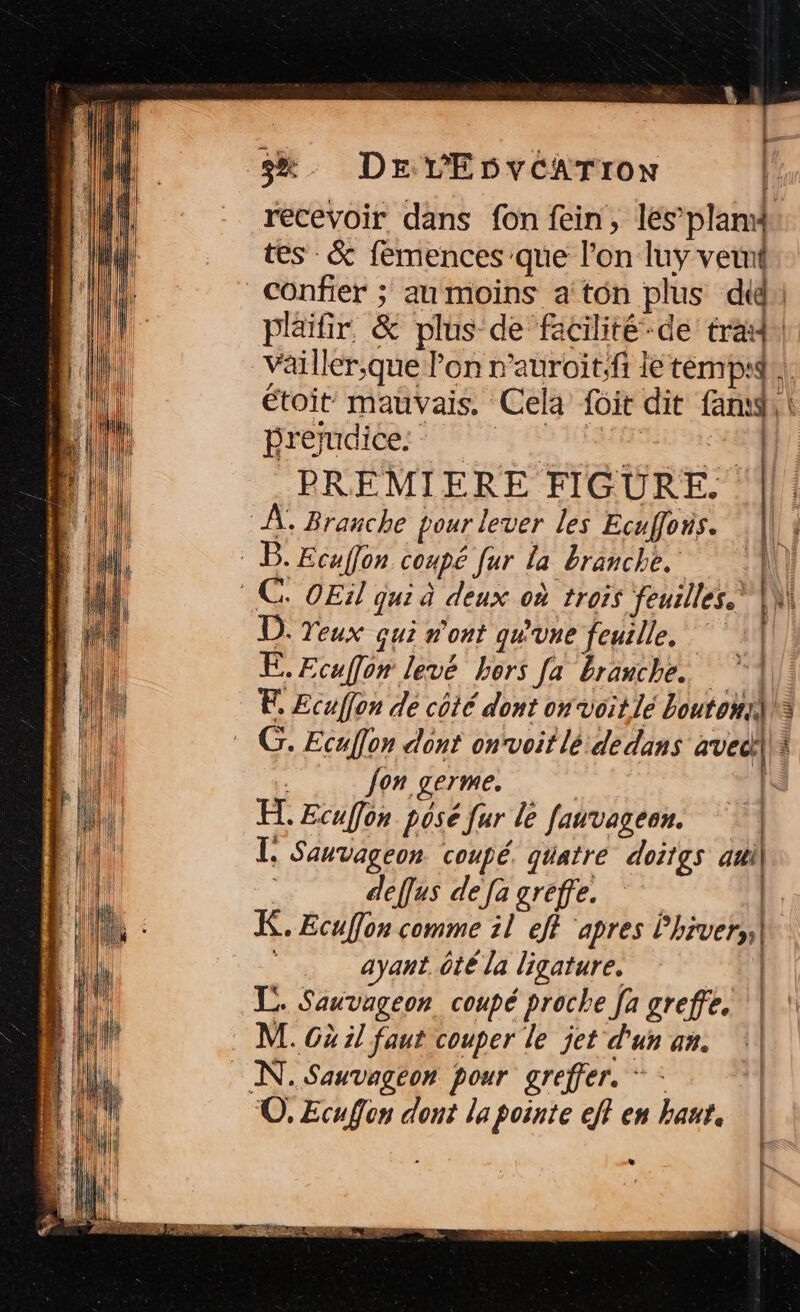 DE L'EDVCATION
recevoir dans ſon ſein, les plan-
tes & ſemences que l'on luy veut
confier ; au moins a ton plus de
plaiſir & plus de facilité de tra-
vailler, que l'on n'auroit, ſi le temps
étoit mauvais. Cela ſoit dit ſans
prejudice.
PREMIERE FIGURE.
A. Branche pour lever les Ecuſſons.
B. Ecuſſon coupé ſur la branche.
C. OEil qui à deux où trois feuilles.
D. Yeux qui n'ont qu'vne feuille.
E. Ecuſſon levé hors ſa branche.
F. Ecuſſon de côté dont on voit le bouton.
G. Ecuſſon dont on voit le dedans avec
ſon germe.
H. Ecuſſon posé ſur le ſauvageon.
I. Sauvageon coupé quatre doitgs au
deſſus de ſa greffe.
K. Ecuſſon comme il eſt apres l'hiver,
ayant ôté la ligature.
L. Sauvageon coupé proche ſa greffe.
M. Où il faut couper le jet d'un an.
N. Sauvageon pour greffer.
O. Ecuſſon dont la pointe eſt en haut.